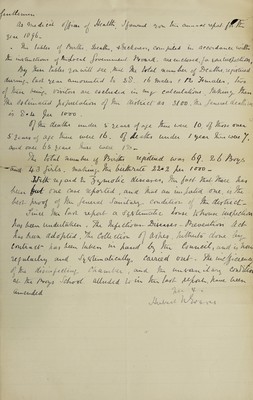 Gentlemen
As medical officer of Health, I forward you the annual report for the
year 1896.
The tables of Births, Deaths, & Sickness, compiled in accordance with
the instructions of the Local Government Board, are enclosed for your inspection.
By these tables you will see that the total number of Deaths registered
during last year amounted to 28. 16 males & 12 Females,
of these being
The estimated population of the district as 3100. the general deathrate
is per 1000.
Of the deaths under 5 years of age there were 10 of those over
5 years of age there were 16. Of deaths under 1 year there was 7,
and over 65 years there were
The total number of Births registered was 69. 26 Boys
and 43 Girls, making the birthrate 22.2 per 1000.
With regard to Zymotic Diseases, the fact that there has
been but one case reported, and that an imported one, is the
best proof of the general Sanitary condition of the district.
Since the last report a systematic house to house inspection
has been undertaken. The Infectious Diseases Prevention Act
has been adopted. The Collection of Ashes, hitherto done by
contract has been taken in hand by the Council, and is now
regularly and systematically carried out. The inefficiency
of the disinfecting Chamber, and the unsanitary condition
of the Boys School alluded to in the last report, have been
amended.